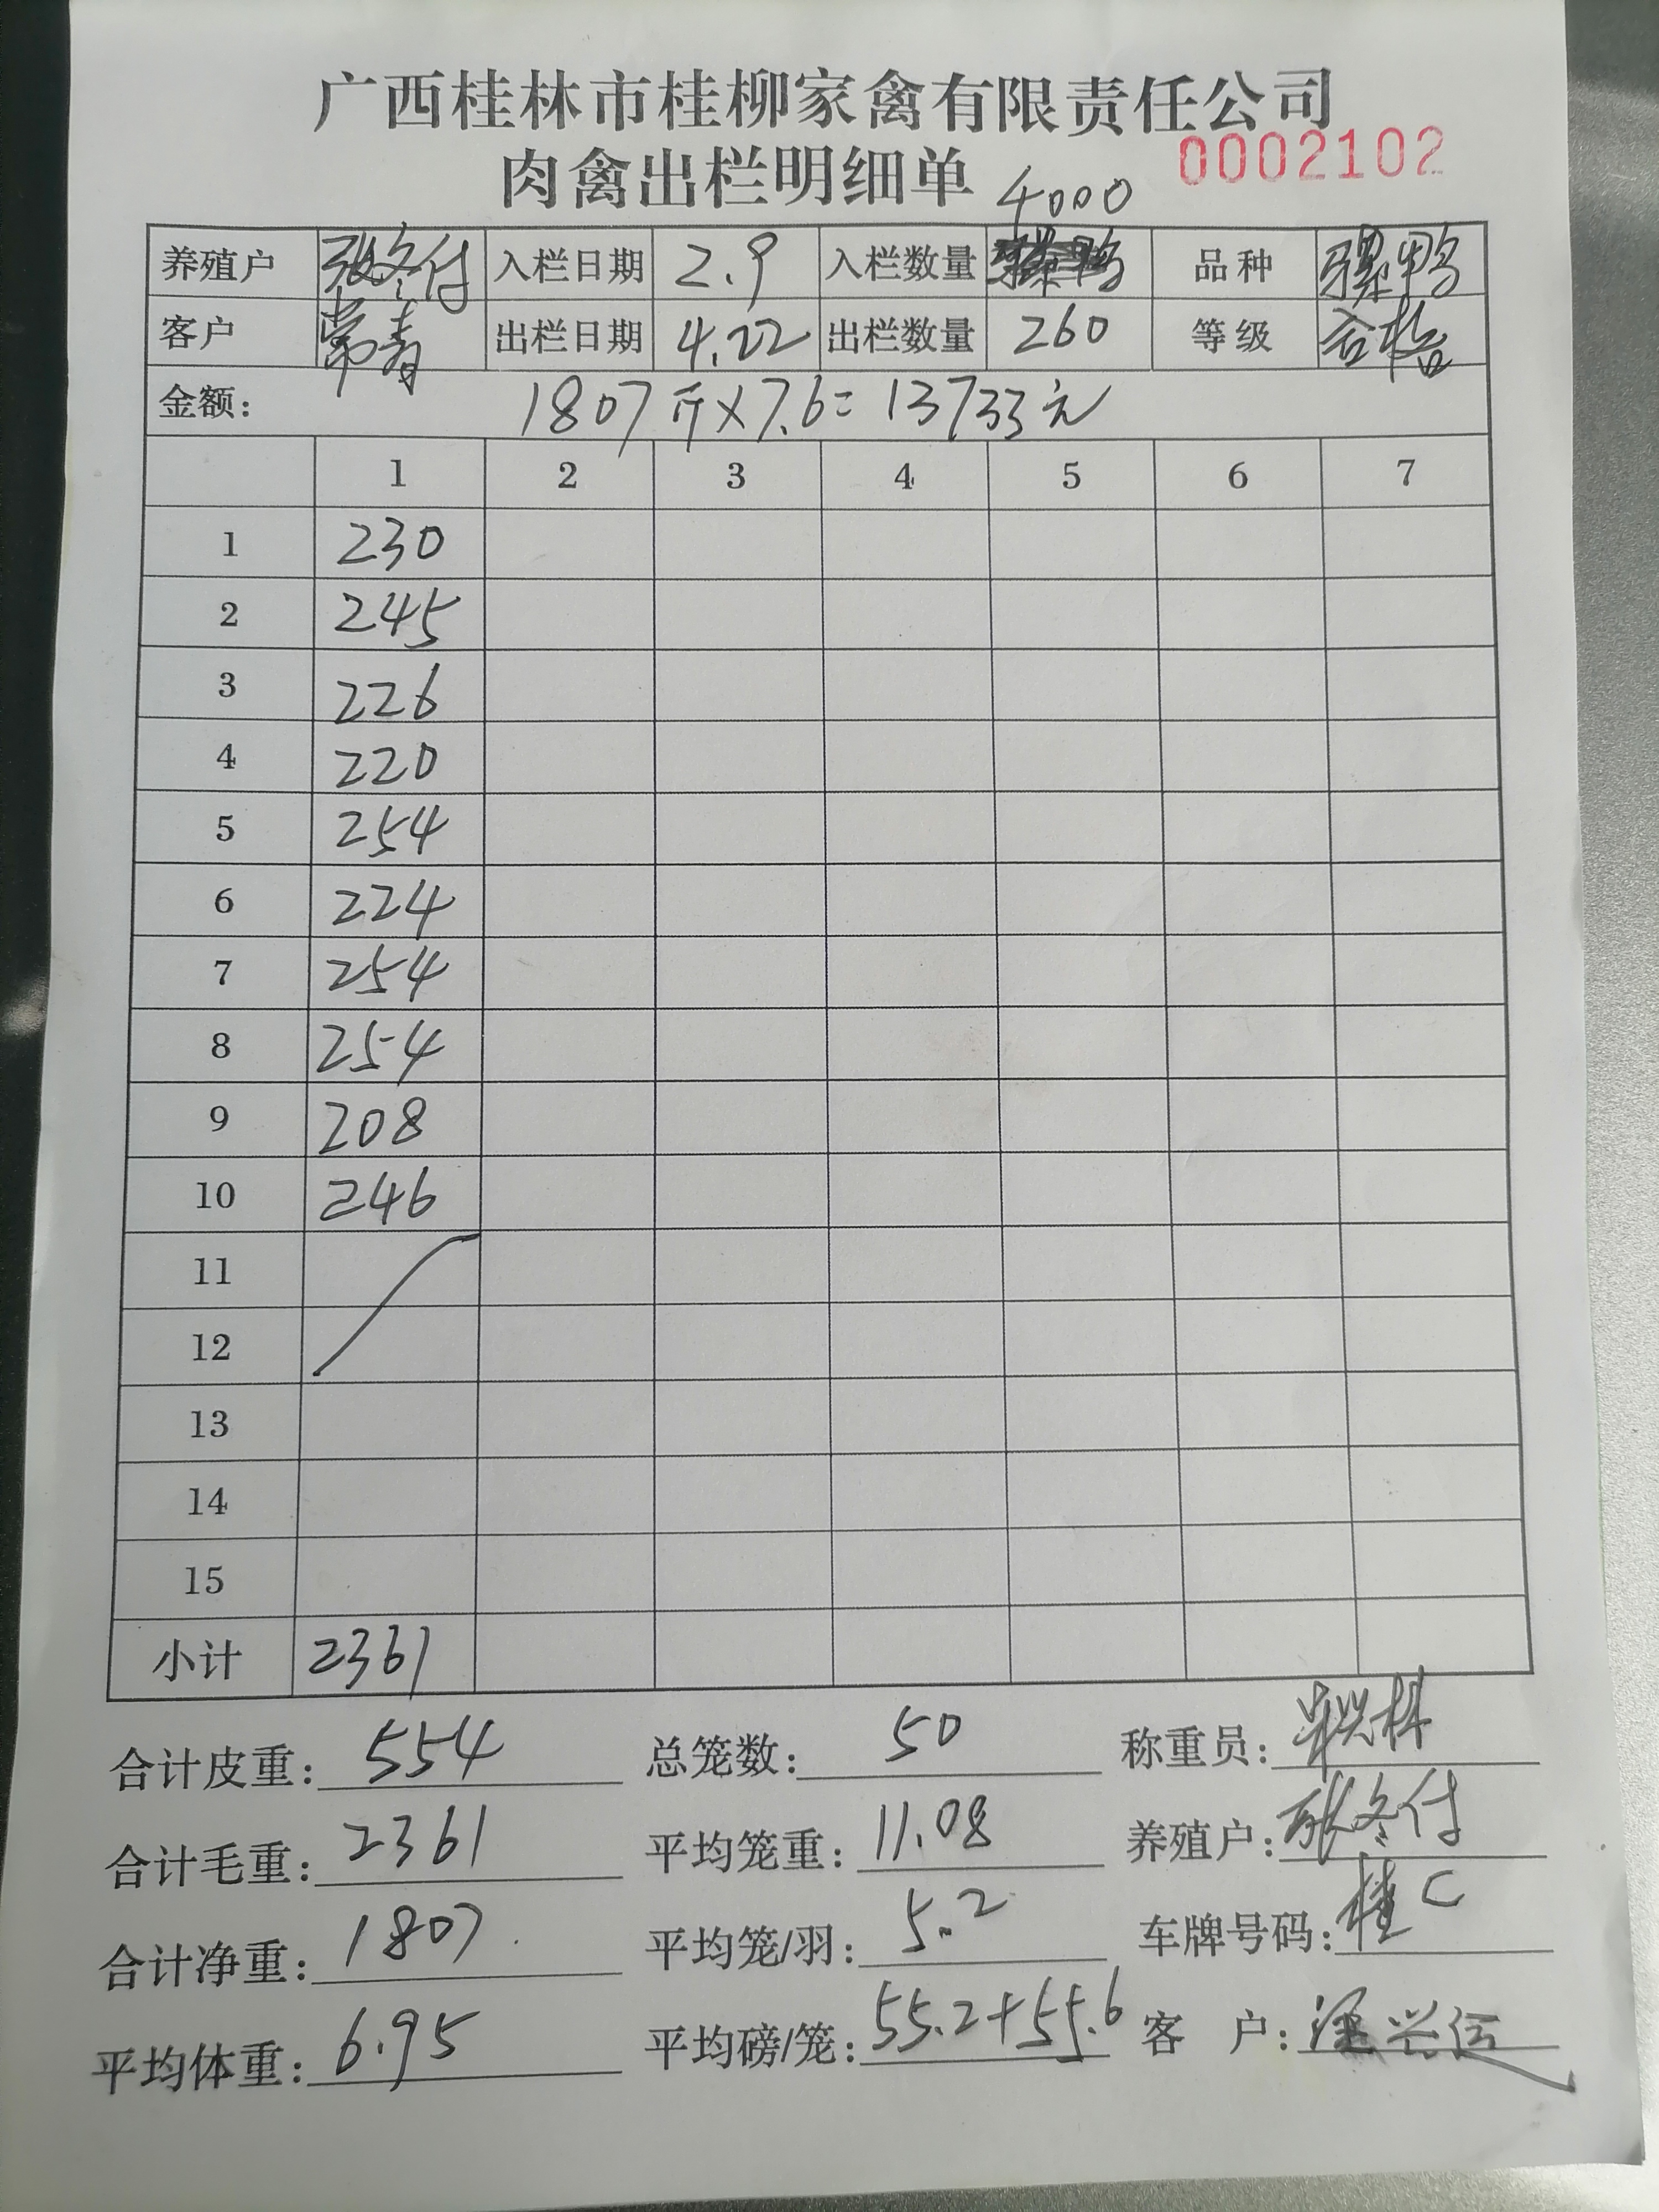 广西桂林市桂柳家禽有限责任公司
肉禽出栏明细单 0002102
4000
养殖户 张冬付 入栏日期 2.9 入栏数量 品种 骡鸭
客户 常青 出栏日期 4.22 出栏数量 260 等级 合格
金额: 1807斤×7.6=13733元
1 2 3 4 5 6 7
1 230
2 245
3 226
4 220
5 254
6 224
7 254
8 254
9 208
10 246
11
12
13
14
15
小计 2361
合计皮重: 554 总笼数: 50 称重员:
合计毛重: 2361 平均笼重: 11.08 养殖户: 张冬付
合计净重: 1807 平均笼/羽: 5.2 车牌号码: 桂C
平均体重: 6.95 平均磅/笼: 55.2+55.6 客户: 兴运